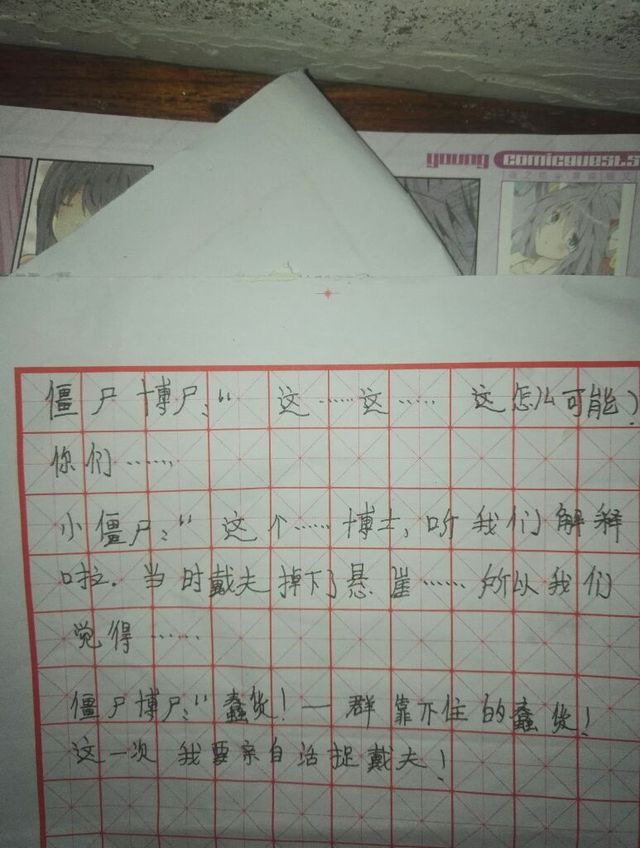 young comicquest.s
僵尸博尸：“ 这……这…… 这怎么可能？
你们……
小僵尸：“ 这个……博士，听我们解释
啦．当时戴夫掉下了悬崖……所以我们
觉得……
僵尸博尸：“蠢货！一群靠不住的蠢货！
这一次我要亲自活捉戴夫！